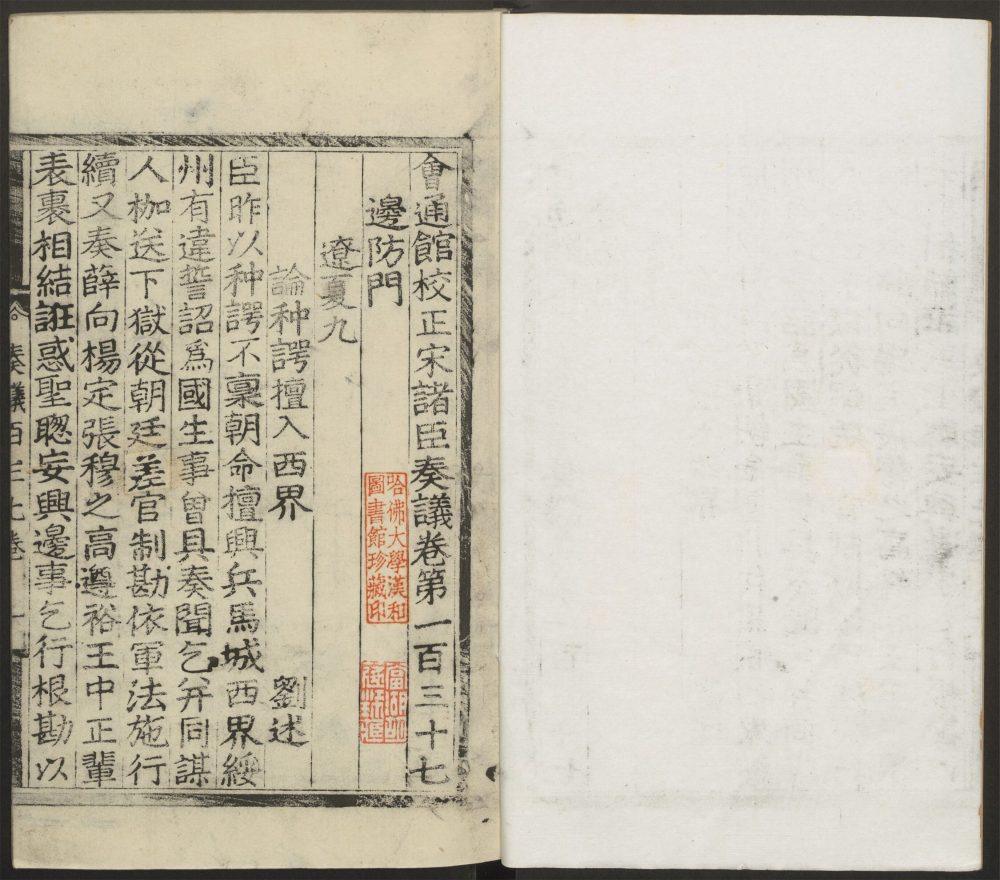 會通館校正宋諸臣奏議卷第一百三十七
邊防門
遼夏九
論种諤擅入西界
劉述
臣昨以种諤不稟朝命擅興兵馬城西界綏
州有違誓詔爲國生事曾具奏聞乞并同謀
人枷送下獄從朝廷差官制勘依軍法施行
續又奏薛向楊定張穆之高遵裕王中正輩
表裏相結誑惑聖聦妄興邊事乞行根勘以
奏議百三七卷 一
哈佛大學漢和
圖書館珍藏印